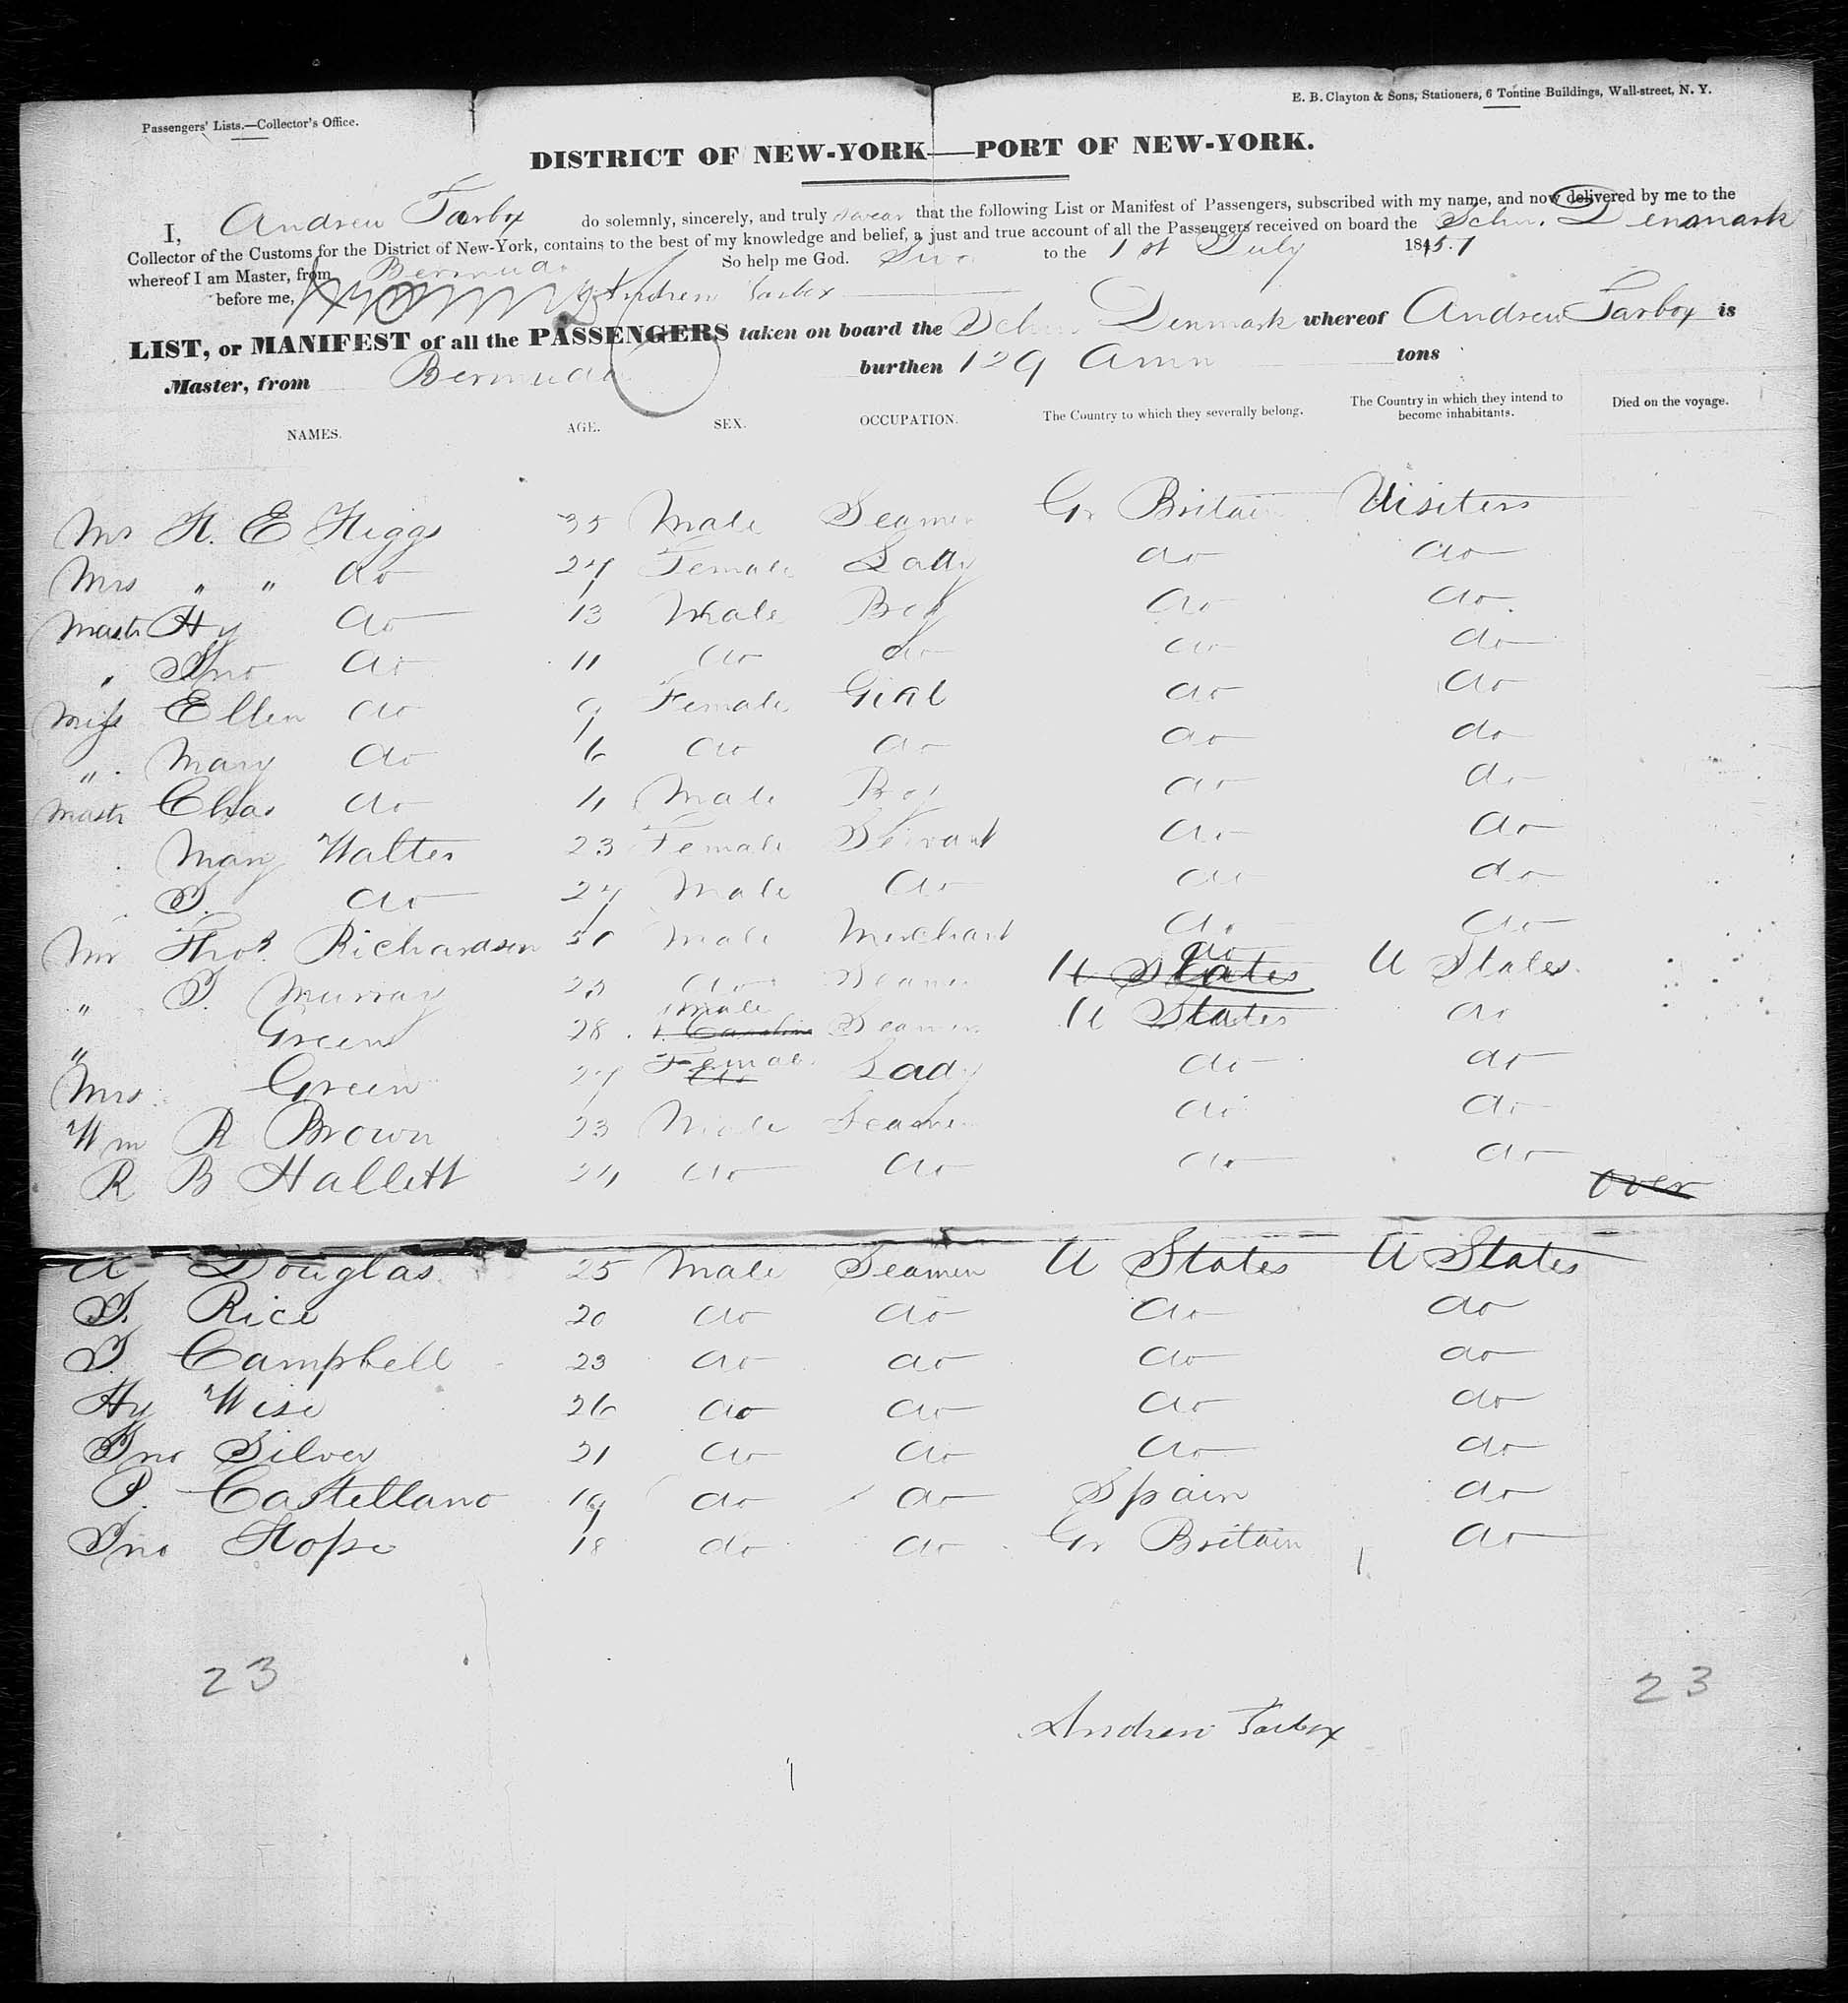 Passengers' Lists.—Collector's Office.
E. B. Clayton & Sons, Stationers, 6 Tontine Buildings, Wall-street, N. Y.
DISTRICT OF NEW-YORK—PORT OF NEW-YORK.
I, Andrew Tarbox do solemnly, sincerely, and truly swear that the following List or Manifest of Passengers, subscribed with my name, and now delivered by me to the
Collector of the Customs for the District of New-York, contains to the best of my knowledge and belief, a just and true account of all the Passengers received on board the Schr. Denmark
whereof I am Master, from Bermuda So help me God.
to the 1st July 1851
before me, Andrew Tarbox
LIST, or MANIFEST of all the PASSENGERS taken on board the Schr Denmark whereof Andrew Tarbox is
Master, from Bermuda burthen 129 tons
NAMES. AGE. SEX. OCCUPATION. The Country to which they severally belong. The Country in which they intend to become inhabitants. Died on the voyage.
Mr H. E Higgs 35 Male Seamen Gr Britain Visiters
Mrs " " do 27 Female Lady do do
Mastr Hy do 13 Male Boy do do
" Jno do 11 do do do do
Miss Ellen do 9 Female Girl do do
" Mary do 6 do do do do
Mastr Chas do 4 Male Boy do do
Mary Walter 23 Female Servant do do
J. do 27 Male do do do
Mr Thos. Richardson 50 Male Merchant do do
" J. Murray 23 do Seamen do U States U States
" Green 28 Male Seamen U States do
Mrs Green 27 Female do Lady do do
Wm R Brown 23 Male Seamen do do
R B Hallett 24 do do do do
over
A Douglas 25 Male Seamen U States U States
J. Rice 20 do do do do
J. Campbell 23 do do do do
Hy Wise 26 do do do do
Jno Silvey 21 do do do do
P. Castellano 19 do do Spain do
Jno Hope 18 do do Gr Britain do
23 23
Andrew Tarbox